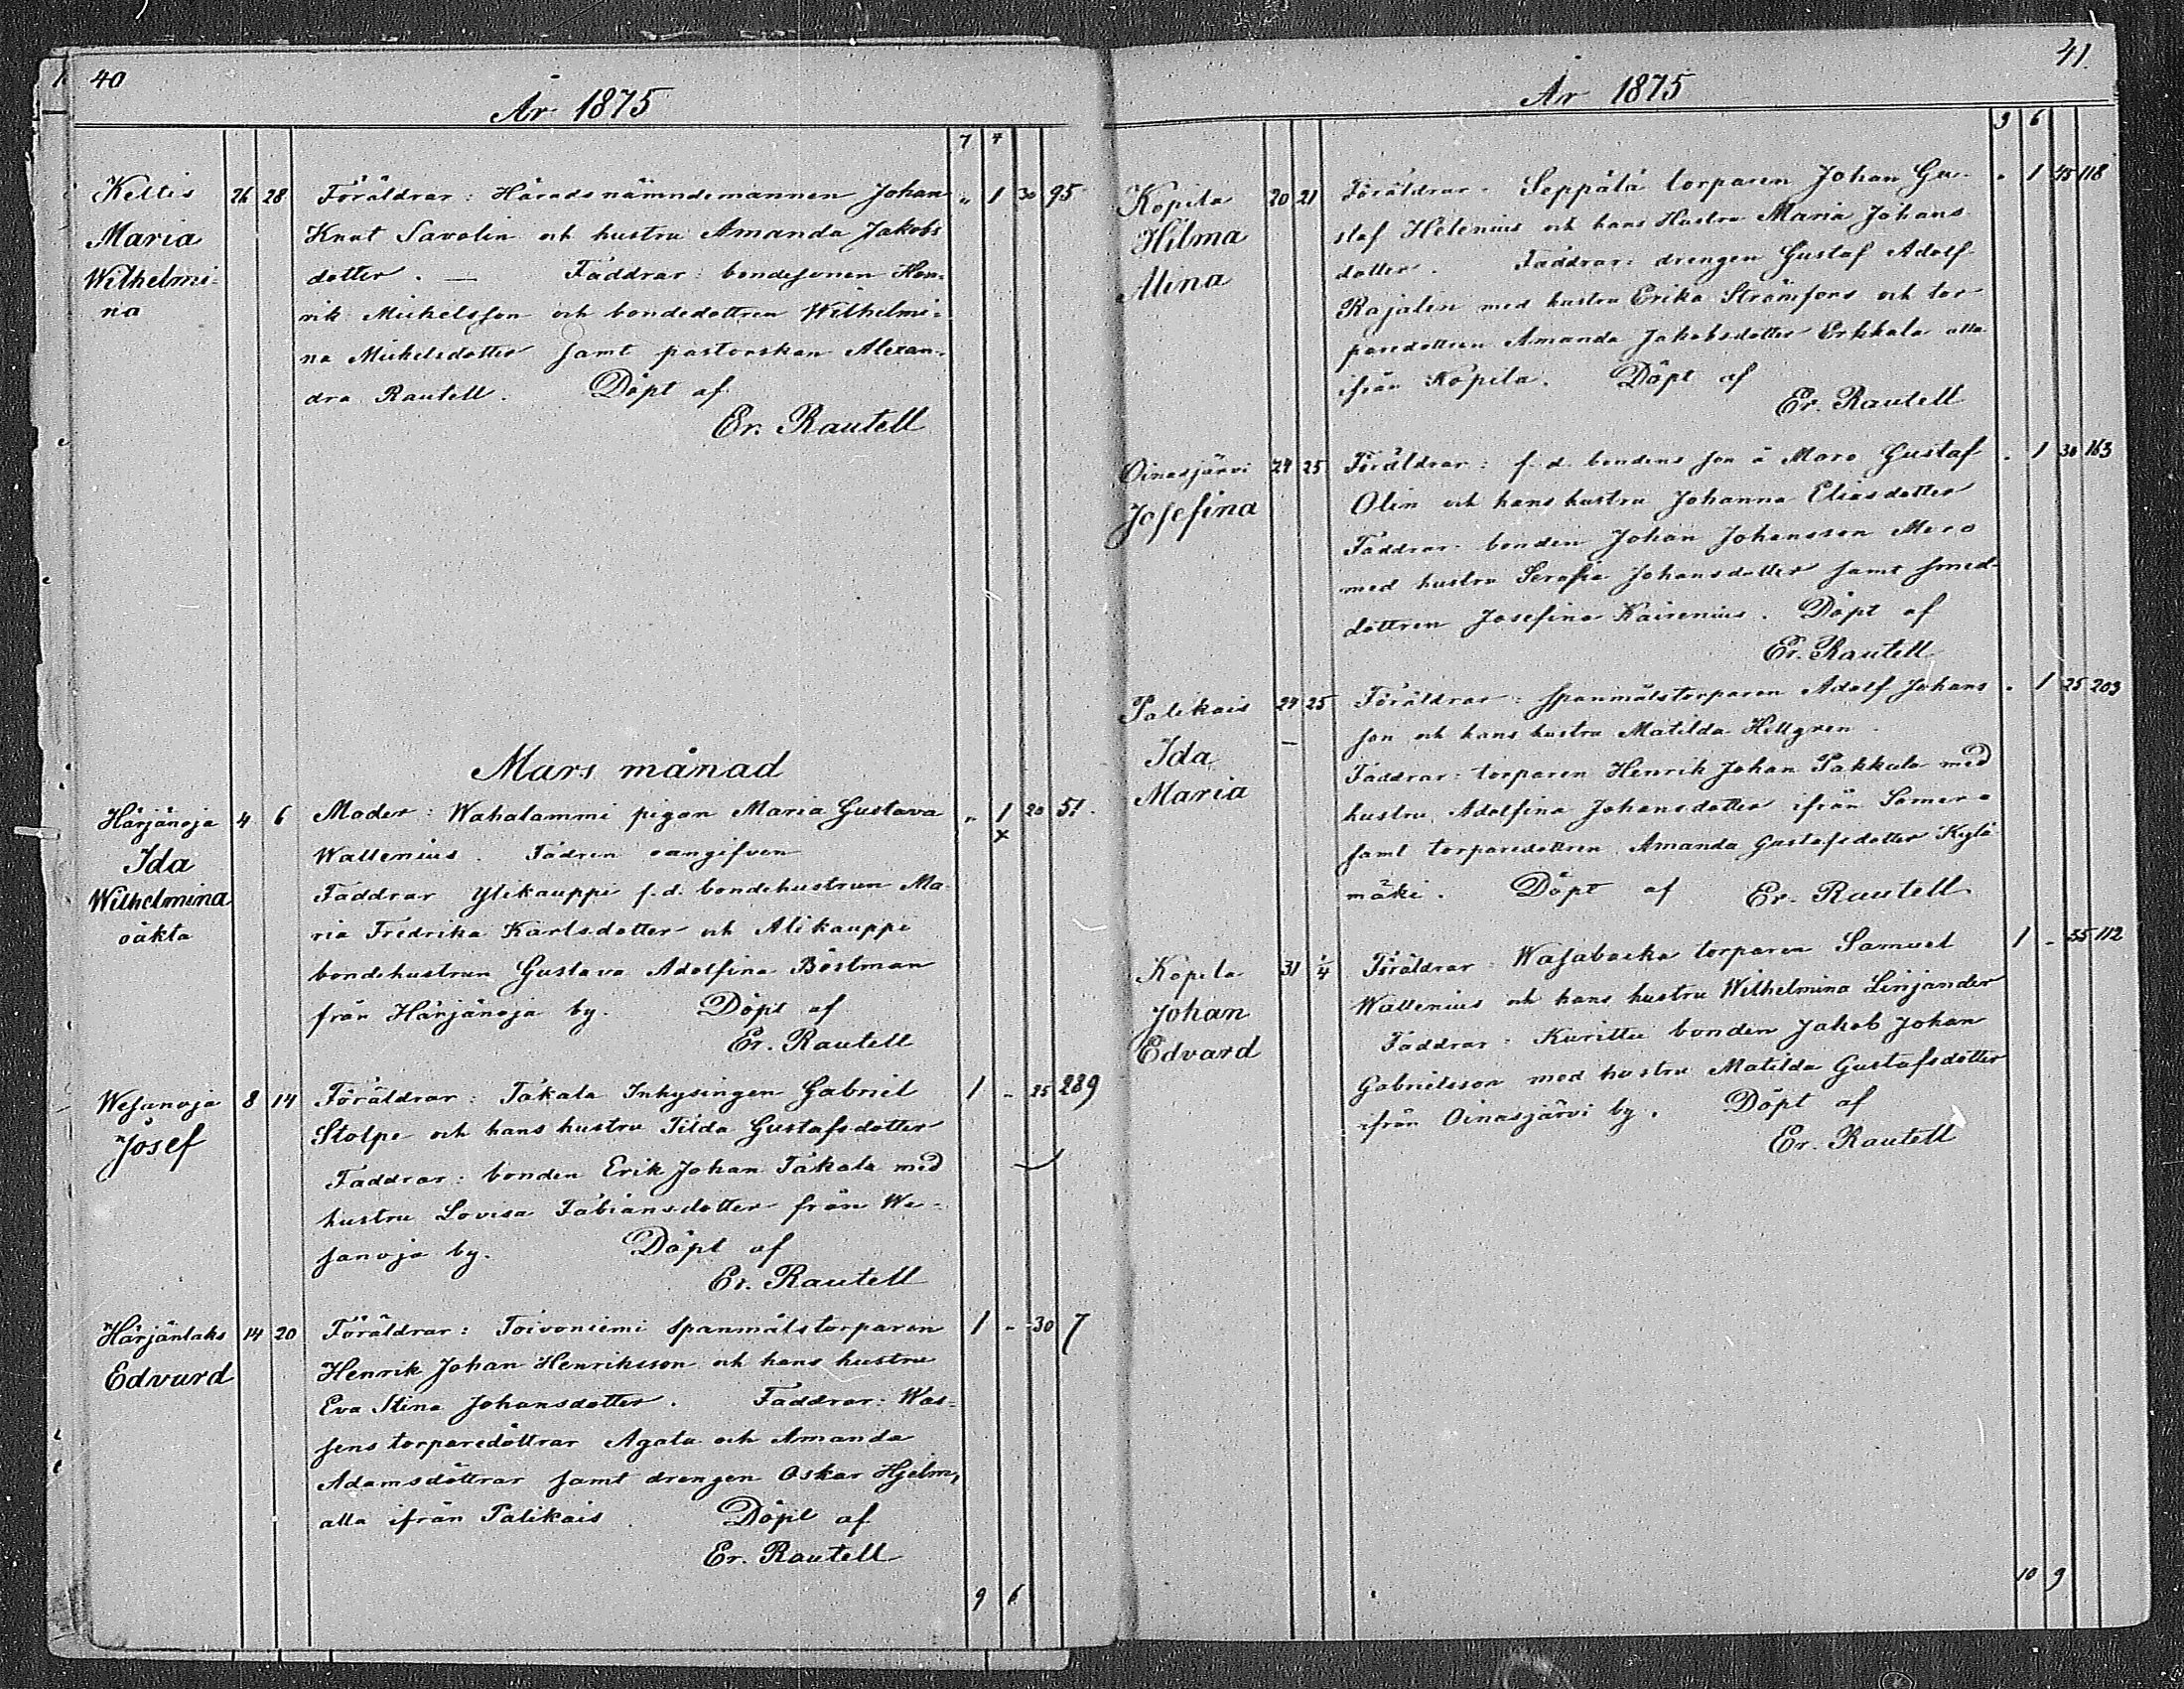 40
År 1875
7 4
Keltis 26 28 Föräldrar: Häradsnämndemannen Johan „ 1 30 95
Maria Knut Savolin och hustru Amanda Jakobs
Wilhelmi- dotter. — Faddrar: bondesonen Hen-
na rik Michelsson och bondedottren Wilhelmi-
na Michelsdotter samt pastorskan Alexan-
dra Rautell. Döpt af
Er. Rautell
Mars månad
Härjänoja 4 6 Moder: Wahalammi pigan Maria Gustava „ 1 20 51.
Ida Wallenius. Fadren oangifven x
Wilhelmina Faddrar Ylikauppi f.d. bondehustrun Ma-
oäkta ria Fredrika Karlsdotter och Alikauppi
bondehustrun Gustava Adolfina Böstman
från Härjänoja by. Döpt af
Er. Rautell
Wesanoja 8 14 Föräldrar: Takala Inhysingen Gabriel 1 - 25 289
Josef Stolpe och hans hustru Tilda Gustafsdotter
Faddrar: bonden Erik Johan Takala med
hustru Lovisa Fabiansdotter från We-
sanoja by. Döpt af
Er. Rautell
Härjänlaks 14 20 Föräldrar: Toivoniemi spanmålstorparen 1 - 30 7
Edvard Henrik Johan Henriksson och hans hustru
Eva Stina Johansdotter. Faddrar: Was-
sens torparedöttrar Agata och Amanda
Adamsdöttrar samt drengen Oskar Hjelm,
alla ifrån Palikais. Döpt af
Er. Rautell
9 6
41.
År 1875
9 6
Kopila 20 21 Föräldrar: Seppälä torparen Johan Gu- „ 1 45 118
Hilma staf Helenius och hans Hustru Maria Johans
Alina dotter. Faddrar: drengen Gustaf Adolf
Rajalin med hustru Erika Strömfors och tor
paredottren Amanda Jakobsdotter Erkkala alla
ifrån Kopila. Döpt af
Er. Rautell
Oinasjärvi 24 25 Föräldrar: f.d. bondens son å Moro Gustaf „ 1 30 163
Josefina Olin och hans hustru Johanna Eliasdotter
Faddrar: bonden Johan Johansson Moro
med hustru Serafia Johansdotter samt smed-
dottren Josefina Kairenius. Döpt af
Er. Rautell
Palikais 24 25 Föräldrar: spanmålstorparen Adolf Johans „ 1 25 203
Ida — son och hans hustru Matilda Hellgren.
Maria Faddrar: torparen Henrik Johan Pakkala med
hustru Adolfina Johansdotter ifrån Somero
samt torparedottren Amanda Gustafsdotter Kylä
mäki. Döpt af Er. Rautell
Kopila 31 1/4 Föräldrar: Wasabacka torparen Samuel 1 - 55 112
Johan Wallenius och hans hustru Wilhelmina Linjander
Edvard Faddrar: Kurittu bonden Jakob Johan
Gabrielsson med hustru Matilda Gustafsdotter
ifrån Oinasjärvi by. Döpt af
Er. Rautell
10 9